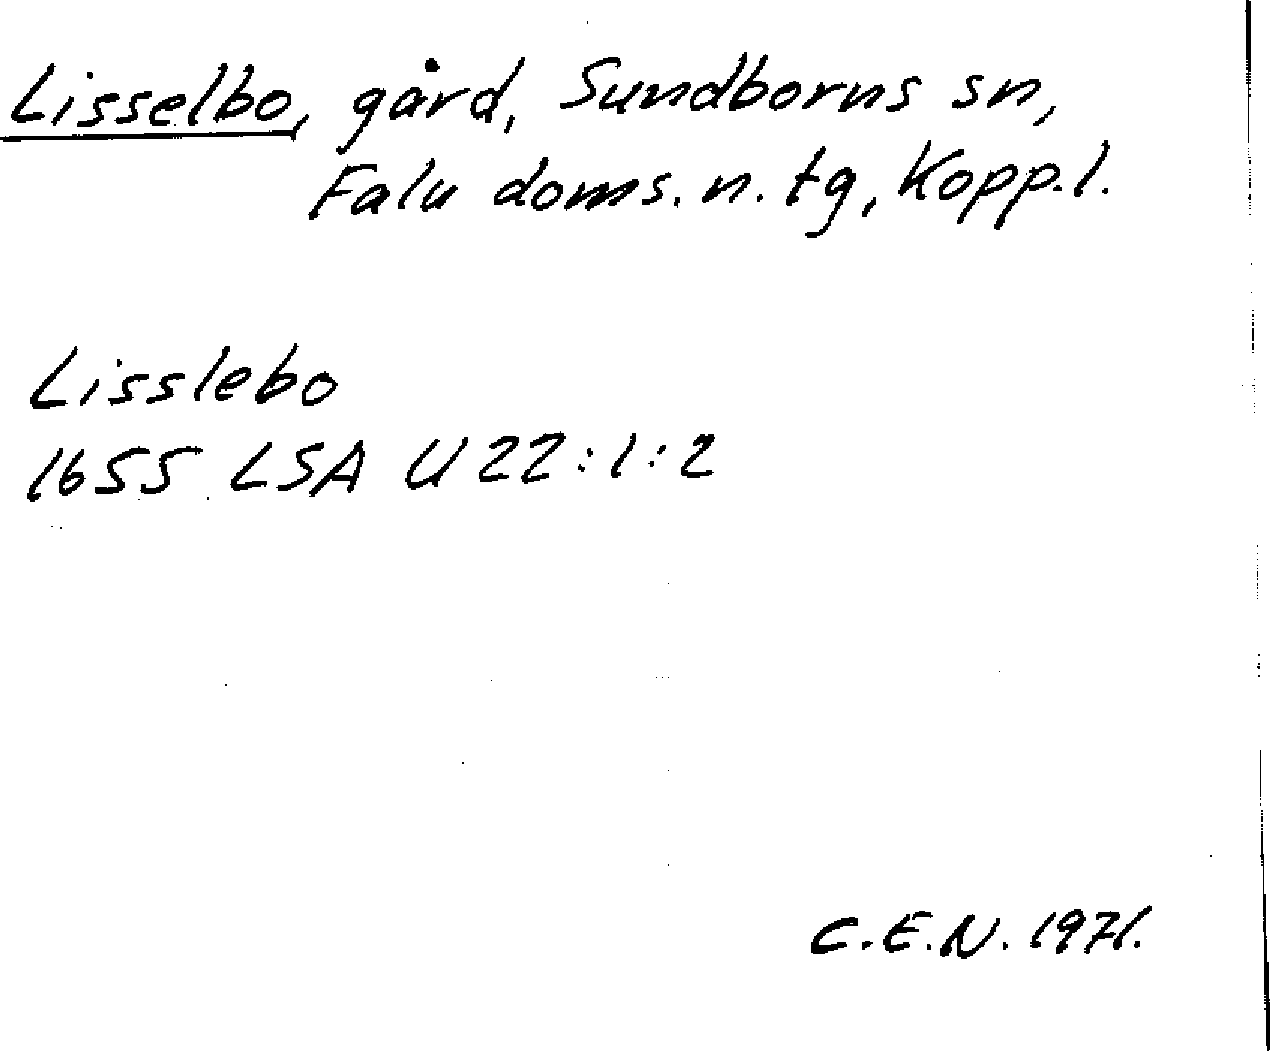 Lisselbo, gård, Sundborns sn,
Falu doms. n. tg, Kopp.l.
Lisslebo
1655 LSA U22:1:2
C.E.N. 1971.